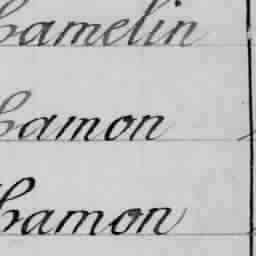 Hamelin
Hamon
Hamon